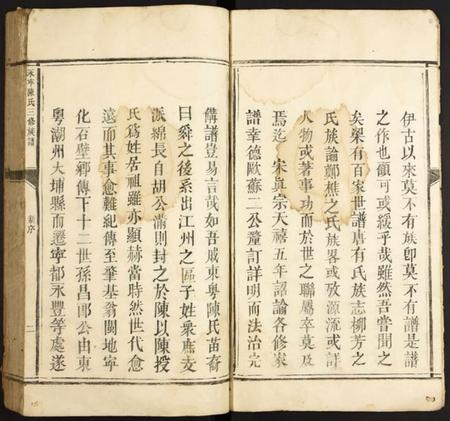 伊古以來莫不有族即莫不有譜是譜
之作也顧可或緩乎哉雖然吾嘗聞之
矣梁有百家世譜唐有氏族志柳芳之
氏族論鄭樵之氏族畧或攷源流或詳
人物或著事功而於世之聯屬卒莫及
焉迄 宋眞宗天禧五年詔諭各修家
譜幸德歐蘇二公釐訂詳明而法治完
備譜豈易言哉如吾戚東粵陳氏苗裔
曰舜之後系出江州之區子姓衆庶支
派綿長自胡公滿則封之於陳以陳授
氏爲姓居祖雖亦顯赫當時然世代愈
遠而其事愈難紀傳至肇基翁閩地寧
化石壁鄉傳下十二世孫昌郎公由東
粵潮州大埔縣而遷寧都永豐等處遂
永寧陳氏三修族譜
新序
二